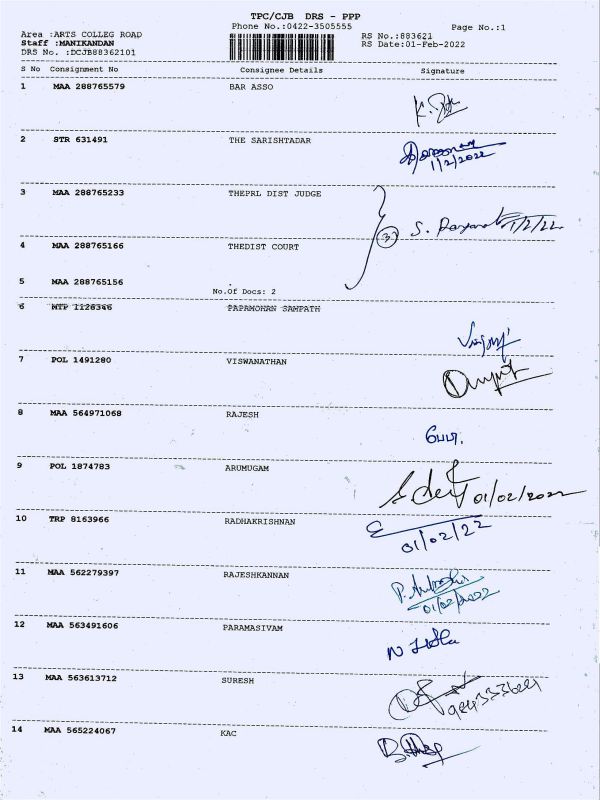 TPC/CJB DRS - PPP
Phone No.:0422-3505555
Page No.:1
Area :ARTS COLLEG ROAD
RS No.:883621
Staff :MANIKANDAN
RS Date:01-Feb-2022
DRS No. :DCJB88362101
S No Consignment No Consignee Details Signature
1 MAA 288765579 BAR ASSO
2 STR 631491 THE SARISHTADAR
1/2/2022
3 MAA 288765233 THEPRL DIST JUDGE
3 S. 1/2/22
4 MAA 288765166 THEDIST COURT
5 MAA 288765156
No.Of Docs: 2
6 MTP 1126346 PAPAMOHAN SAMPATH
7 POL 1491280 VISWANATHAN
8 MAA 564971068 RAJESH
9 POL 1874783 ARUMUGAM
01/02/2022
10 TRP 8163966 RADHAKRISHNAN
01/02/22
11 MAA 562279397 RAJESHKANNAN
01/02/2022
12 MAA 563491606 PARAMASIVAM
13 MAA 563613712 SURESH
14 MAA 565224067 KAC